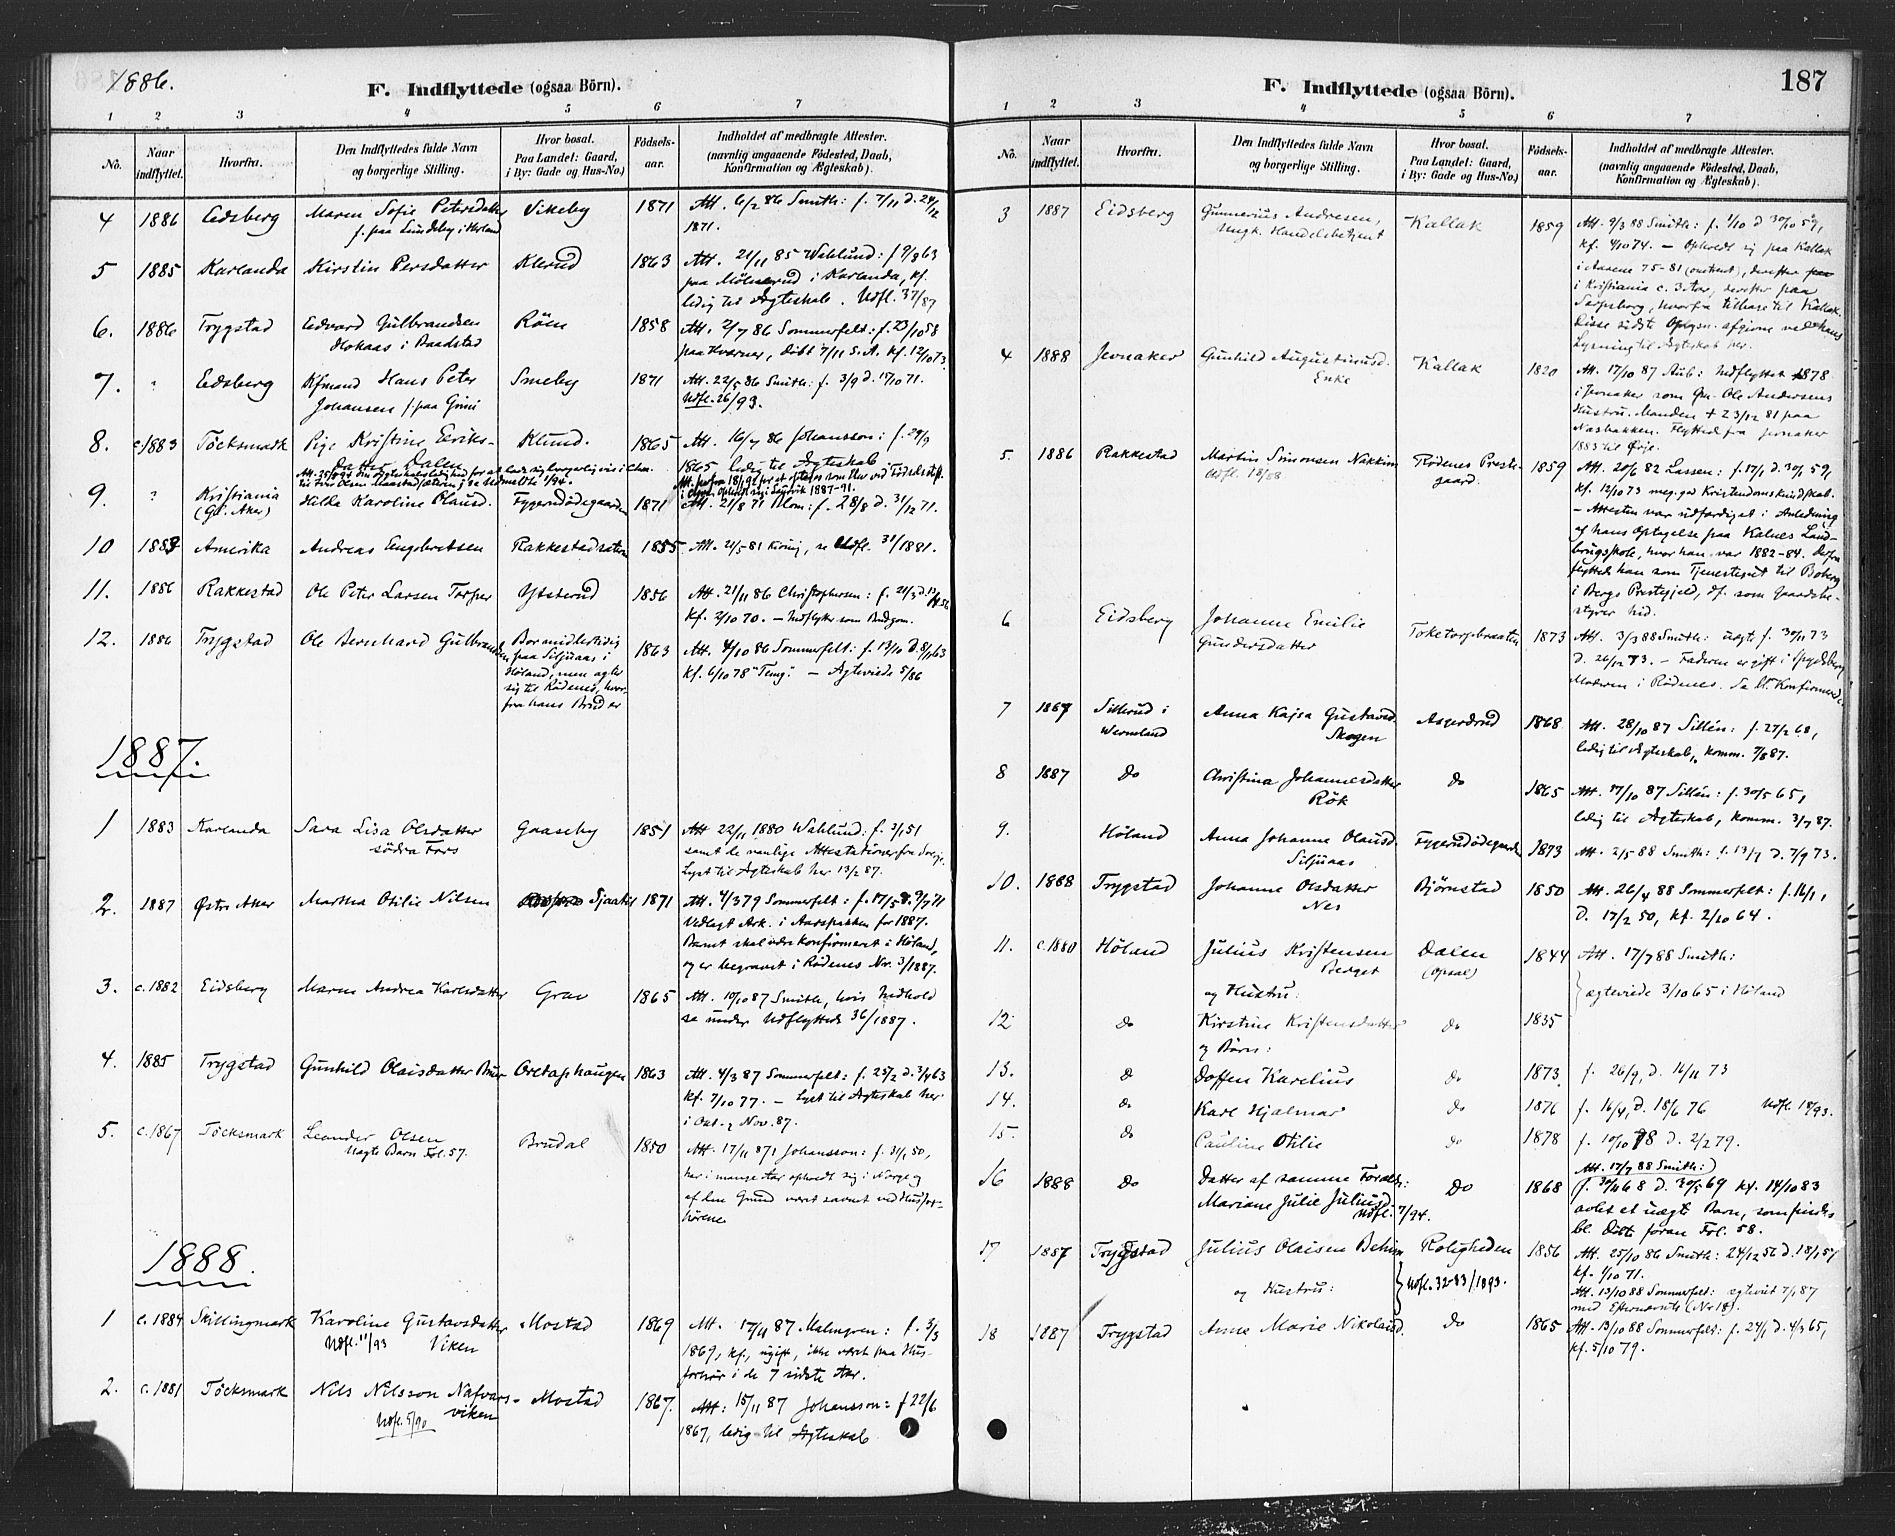 1886.
F. Indflyttede (ogsaa Börn).
1 2 3 4 5 6 7
No.
Naar indflyttet.
Hvorfra.
Den Indflyttedes fulde Navn
og borgerlige Stilling.
Hvor bosat.
Paa Landet: Gaard,
i By: Gade og Hus-No.)
Födsels-
aar.
Indholdet af medbragte Attester.
(navnlig angaaende Födested, Daab,
Konfirmation og Ægteskab).
4 1886 Edsberg Maren Sofie Petersdatter Vikeby 1871 Att. 6/2 86 Smith: f. 7/11 d. 24/12
f. paa Lundeby i 1871.
5 1885 Karlanda Kirstin Persdatter Klerud 1863 Att. 21/11 85 Wahlund: f 9/8 63
paa i Karlanda, kf.
ledig til Ægteskab. Udfl. 37/87
6. 1886 Trygstad Edvard Gulbrandsen Röen 1858 Att. 2/7 86 Sommerfelt: f. 23/10 58
i Baadstad paa Kvarner, döbt 7/11 S.A. kf. 12/10 73.
7. " Edsberg Kfmand Hans Peter Smeby 1871 Att. 22/5 86 Smith: f. 3/9 d. 15/10 71.
Johansen f. paa Udfl. 26/93.
8. c. 1883 Töcksmark Pige Kristine Eriks- Klund. 1865 Att. 16/7 86 Johansson: f. 29/9
datter Dalen 1865 ledig til Ægteskab
9. " Kristiania Hilda Karoline Olausd. Fygerudödegaarden 1871 Att. 21/8 71 Blom: f. 28/8 d. 31/12 71.
(Gl. Aker)
10 1883 Amerika Andreas Engebretsen Rakkestadsæteren 1855 Att. 2/5 81 König, se Udfl. 31/1881.
11. 1886 Rakkestad Ole Peter Larsen Torper Ysterud 1856 Att. 21/11 86 Christophersen: f. 21/3 d.
kf. 2/10 70. — Indflytter som Brudgom.
12. 1886 Trygstad Ole Bernhard Gulbrandsen Bor midlertidig 1863 Att. 4/10 86 Sommerfelt: f. 13/10 d. 8/11 63
paa Siljuaas i kf. 6/10 78 "Temg." — Ægteviede 5/86
Höland, men agter
sig til Rödenes, hvor-
fra hans Brud er
1887.
1 1883 Karlanda Sara Lisa Olsdatter Gaaseby 1851 Att 22/11 1880 Wahlund: f. 3/1 51
södra Fors samt de vanlige Attestationer fra Sverige.
Lyst til Ægteskab her 13/2 87.
2. 1887 Östre Aker Martha Otilie Nilsen 1871 Att. 4/3 79 Sommerfelt: f. 17/5 d. 9/7 71
Vedlagt Ark. i Aarspakken for 1887.
Barnet skal være konfirmeret i Höland,
og er begravet i Rödenes Nr. 3/1887.
3. c. 1882 Eidsberg Maren Andrea Karlsdatter Grav 1865 Att. 10/10 87 Smith, hvis Indhold
se under Udflyttede 36/1887.
4. 1885 Trygstad Gunhild Olaisdatter Brun Oredajshaugen 1863 Att. 4/3 87 Sommerfelt: f. 25/2 d. 3/4 63
kf. 7/10 77. — Lyst til Ægteskab her
i Okt. & Nov. 87.
5. c. 1867 Töcksmark Leander Olsen Brudal 1850 Att. 17/11 87, Johansson: f. 31/1 50,
Uægte Barn Frl. 57. her i mange Aar opholdt sig i Norge og
af den Grund været savnet ved Husfor-
hörene.
1888.
1 c. 1884 Skillingmark Karoline Gustavsdatter Mostad 1869 Att. 17/11 87 Malmgren: f. 3/3
Udfl. 11/93 Viken 1869, kf., ugift, ikke været paa Hus-
forhör i de 7 sidste Aar.
2. c. 1881 Töcksmark Nils Nilsson Nafvars- Mostad 1867. Att: 15/11 87 Johansson: f 22/6
Udfl. 5/90 viken 1867, ledig til Ægteskab
F. Indflyttede (ogsaa Börn). 187
1 2 3 4 5 6 7
No.
Naar
indflyttet.
Hvorfra.
Den Indflyttedes fulde Navn
og borgerlige Stilling.
Hvor bosat.
Paa Landet: Gaard,
i By: Gade og Hus-No.)
Födsels-
aar.
Indholdet af medbragte Attester.
(navnlig angaaende Födested, Daab,
Konfirmation og Ægteskab).
3 1887 Eidsberg Gunnerius Andresen, Kallak 1859 Att. 9/3 88 Smith: f. 1/10 d 30/10 59,
ungk. Handelsbetjent kf. 4/10 74. — Opholdt sig paa Kallak
i Aasene 75-81 (omtrent), derefter
i Kristiania c. 3 Aar, derefter paa
Sarpsborg, hvorfra tilbage til Kallak.
Disse sidste Oplysn. afgivne ved hans
Lysning til Ægteskab her.
4 1888 Jevnaker Gunhild Augustinusd. Kallak 1820 Att. 17/10 87 Aub: Indflyttet 1878
Enke i Jevnaker som Gm. Ole Andersens
Hustru. Manden + 23/12 81 paa
Næsbakken. Flyttede fra Jevnaker
1883 til Örje.
5. 1886 Rakkestad Martin Simonsen Nakkim Rödenes Preste- 1859 Att. 20/6 82 Lassen: f. 17/1 d. 30/1 59,
Udfl. 18/88 gaard. kf. 12/10 73 meg. god Kristendomskundskab.
— Attesten var udfærdiget i Anledning
af hans Optagelse paa Kalnes Land-
brugsskole, hvor han var 1882-84. Derfra
flyttede han som Tjenestegut til Boberg
i Bergs Prestegjeld, df. som Gaardsbe-
styrer hid.
6 Eidsberg Johanne Emilie Toketorpbraaten 1873 Att. 3/3 88 Smith: uægte f. 30/11 73
Gundersdatter d. 26/12 73. — Faderen er gift i Spydeberg
Moderen i Rödenes. Se bl. Konfirmerede
7 1887 Sillerud i Anna Kajsa Gustavsd. Asgerdrud 1868 Att. 28/10 87 Sillén: f. 27/2 68,
Wermland Skogen ledig til Ægteskab, komm. 7/8 87.
8 1887 Do Christina Johannesdatter Do 1865 Att. 17/10 87 Sillén: f. 30/5 65,
Rök ledig til Ægteskab, komm. 3/7 87.
9. Höland Anna Johanne Olausd. Fygerudödegaarden 1873 Att. 2/5 88 Smith: f. 13/7 d. 7/9 73.
Siljuaas
10. 1888 Trygstad Johanne Olsdatter Bjørnstad 1850 Att. 26/4 88 Sommerfelt: f. 16/1,
Nes d. 17/2 50, kf. 2/10 64.
11. c. 1880 Höland Julius Kristensen Dalen 1844 Att. 17/7 88 Smith:
Berget (Opsal)
og Hustru: ægteviede 3/10 65 i Höland
12 Do Kirstine Kristensdatter Do 1835
og Börn:
13. Do Doffen Karelius Do 1873 f. 26/9, d. 16/11 73
14. Do Karl Hjalmar Do 1876 f. 16/4, d. 18/6 76 Udfl. 18/93.
15. Do Pauline Otilie Do 1878 f. 10/10 78 d. 2/2 79.
16 1888 Do Datter af samme Foræld.: Do 1868 Att. 17/7 88 Smith:)
Mariane Julie Juliusd. (f. 30/4 68 d. 30/5 69 kf. 14/10 83
Udfl. 7/94. avlet et uægte Barn, som findes
bl. Döbte foran Frl. 58.
17 1887 Trygstad Julius Olaisen Roligheden 1856 Att. 25/10 86 Smith: 24/12 56 d. 18/1 57
kf. 1/10 71.
og Hustru: Udfl. 32-33/1893. Att. 13/10 88 Sommerfelt: ægteviet 7/1 87
med Efternævnte (Nr 18).
18 1887 Trygstad Anna Marie Nikolaisd. Do 1865 Att. 13/10 88 Sommerfeldt: f. 24/1 d. 4/3 65,
kf. 5/10 79.